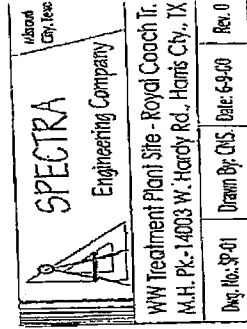 SPECTRA
Engineering Company
Missouri
City, Texas
WW Treatment Plant Site - Royal Coach Tr.
M.H. Pk.- 14003 W. Hardy Rd., Harris Cty., TX
Dwg. No.: SP-01 Drawn By: CNS. Date: 6-9-00 Rev. 0